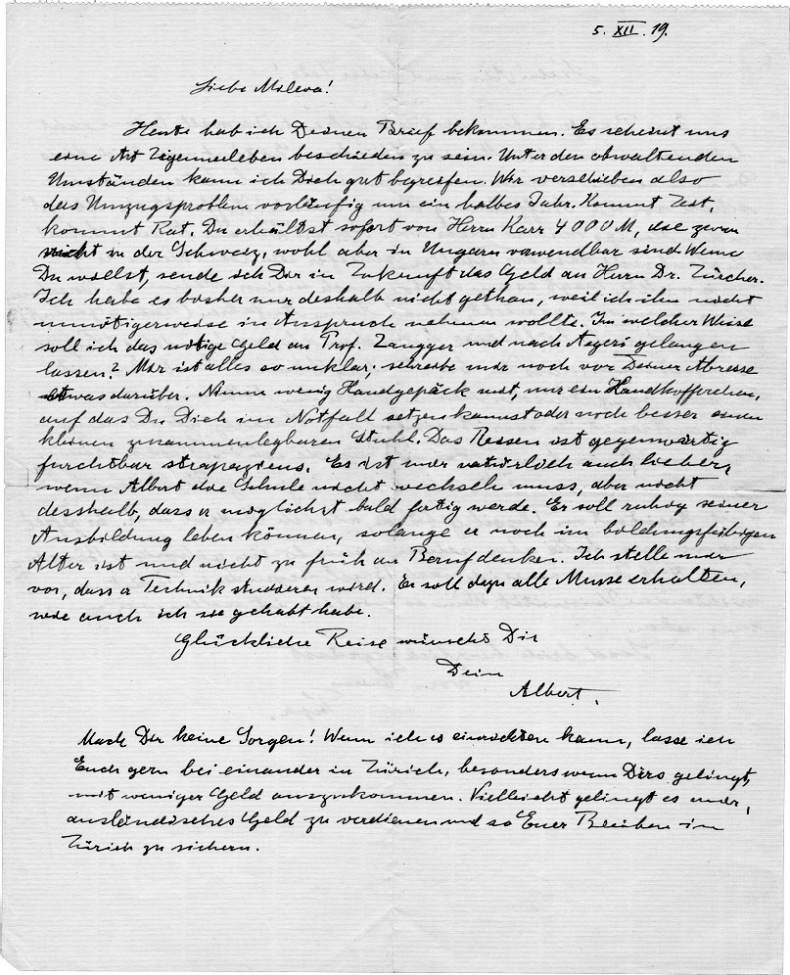 5. XII. 19.
Liebe Mileva!
Heute hab ich Deinen Brief bekommen. Es scheint uns
eine Art Zigeunerleben beschieden zu sein. Unter den obwaltenden
Umständen kann ich Dich gut begreifen. Wir verschieben also
das Umzugsproblem vorläufig um ein halbes Jahr. Kommt Zeit,
kommt Rat. Du erhältst sofort von Herrn Karr 4000 M, die zwar
nicht in der Schweiz, wohl aber in Ungarn verwendbar sind. Wenn
Du willst, sende ich Dir in Zukunft das Geld an Herrn Dr. Zürcher.
Ich habe es bisher nur deshalb nicht gethan, weil ich ihn nicht
unnötigerweise in Anspruch nehmen wollte. In welcher Weise
soll ich das nötige Geld an Prof. Zangger und nach Aegeri gelangen
lassen? Mir ist alles so unklar; schreibe mir noch vor Deiner Abreise
etwas darüber. Nimm wenig Handgepäck mit, nur ein Handköfferchen,
auf das Du Dich im Notfall setzen kannst oder noch besser einen
kleinen zusammenlegbaren Stuhl. Das Reisen ist gegenwärtig
furchtbar strapaziens. Es ist mir natürlich auch lieber,
wenn Albert die Schule nicht wechseln muss, aber nicht
desshalb, dass er möglichst bald fertig werde. Er soll ruhig seiner
Ausbildung leben können, solange er noch im bildungsfähigen
Alter ist und nicht zu früh an Beruf denken. Ich stelle mir
vor, dass er Technik studieren wird. Er soll dazu alle Musse erhalten,
wie auch ich sie gehabt habe.
Glückliche Reise wünscht Dir
Dein
Albert.
Mach Dir keine Sorgen! Wenn ich es einrichten kann, lasse ich
Euch gern bei einander in Zürich, besonders wenn Dirs gelingt,
mit weniger Geld auszukommen. Vielleicht gelingt es mir,
ausländisches Geld zu verdienen und so Euer Bleiben in
Zürich zu sichern.